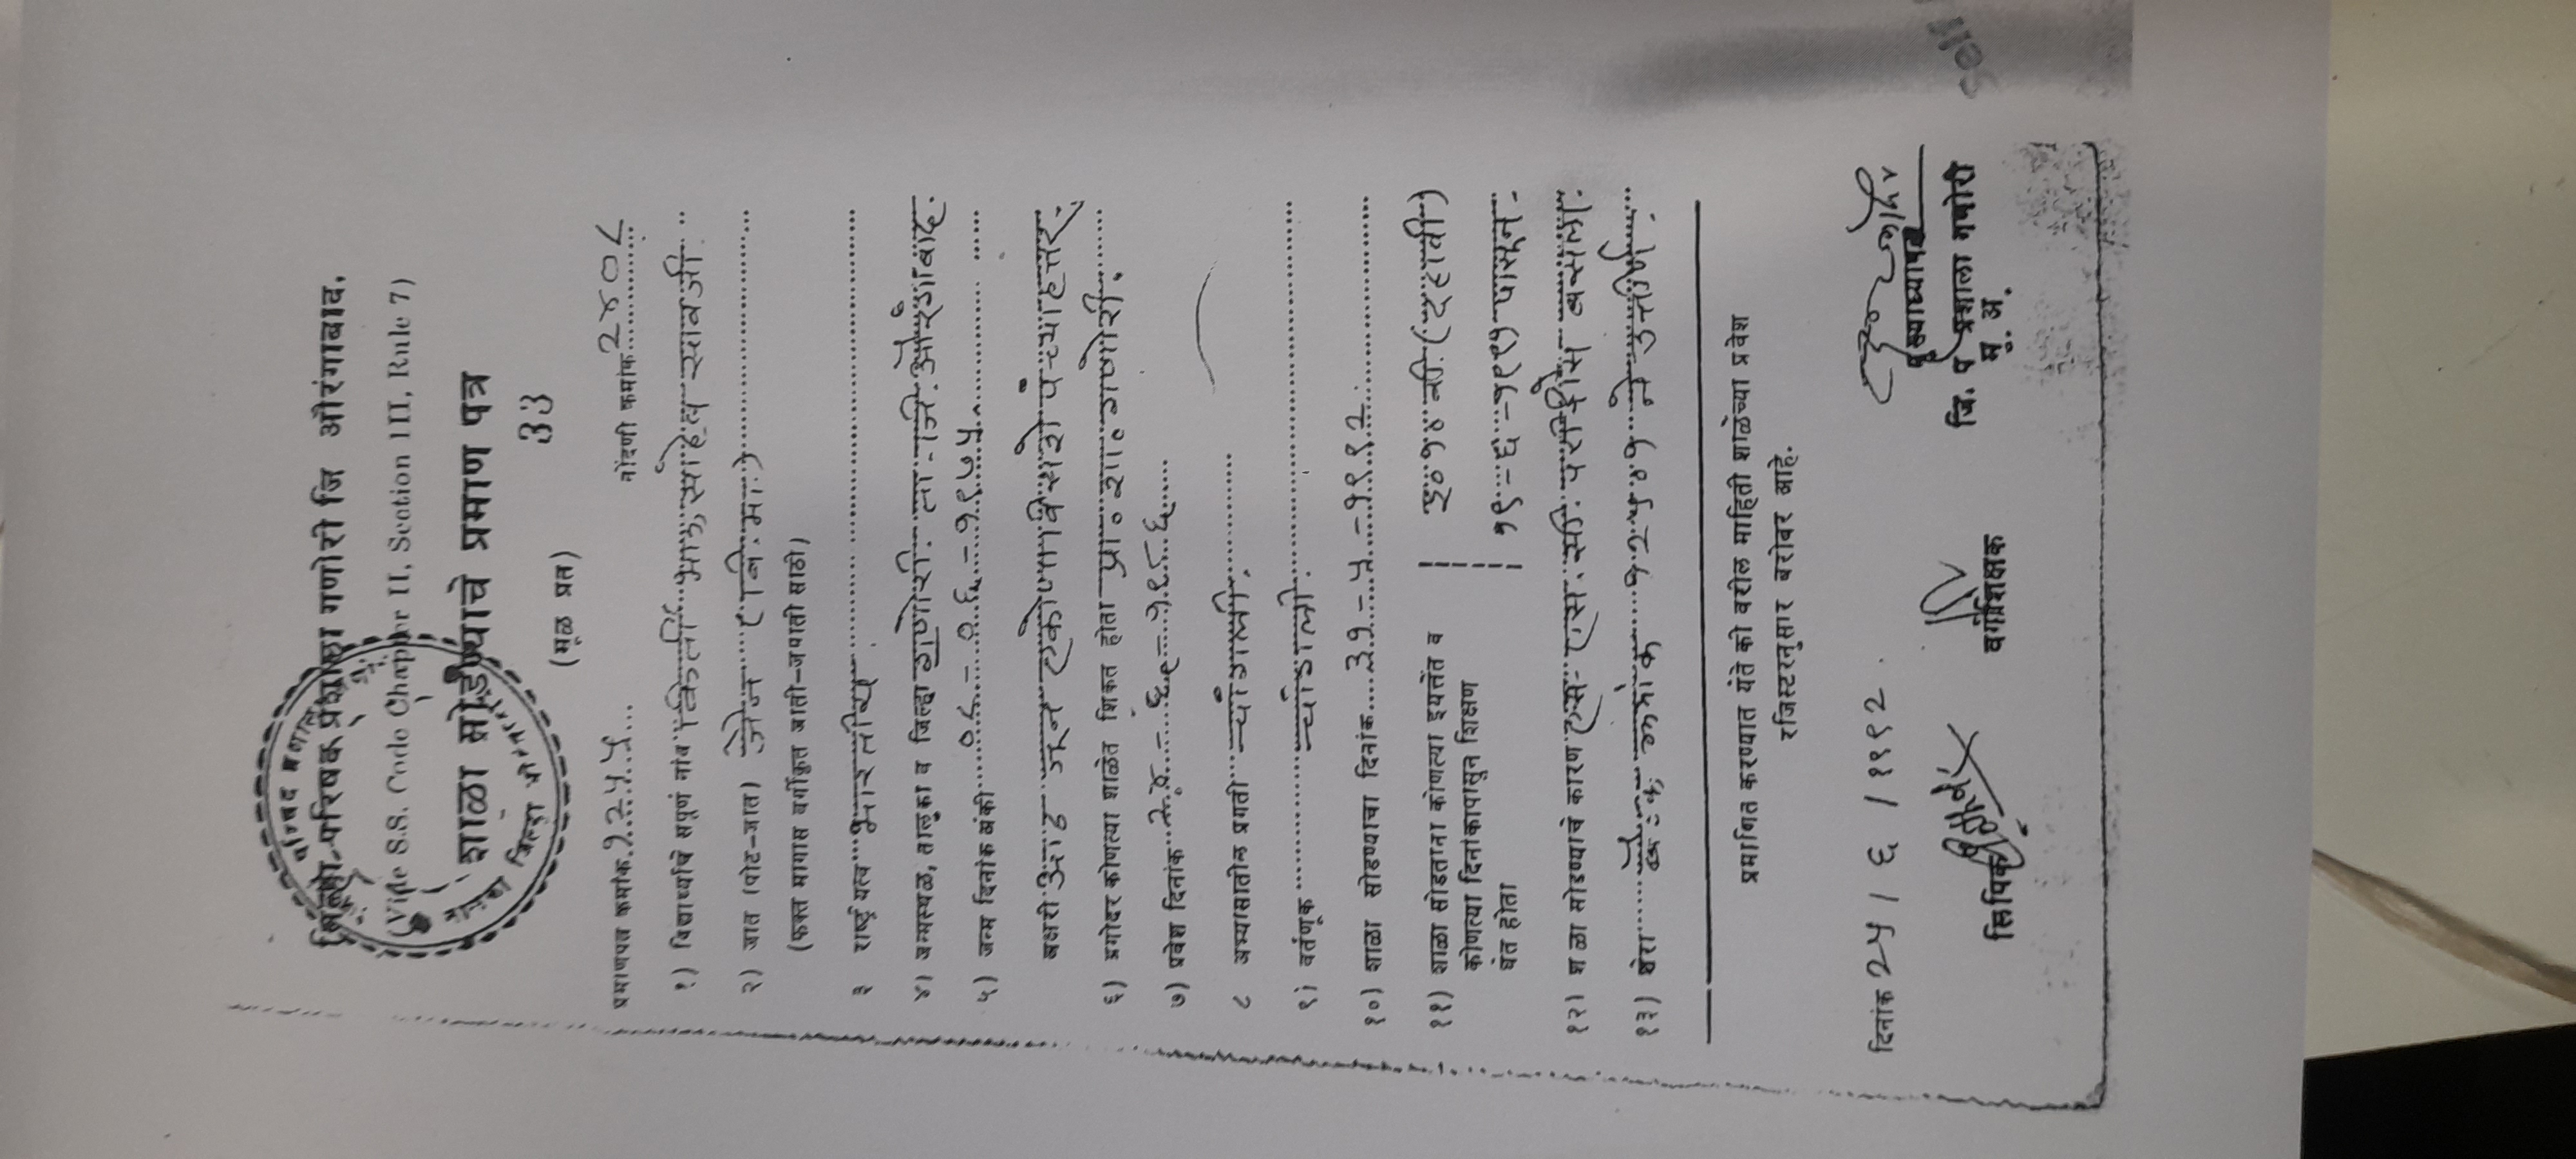 जिल्हा परिषद प्रशाला गणोरी जि औरंगाबाद.
(Vide S.S. Code Chapter II, Section III, Rule 7)
शाळा सोडण्याचे प्रमाण पत्र
33
(मूळ प्रत)
प्रमाणपत्र क्रमांक. १२५५ नोंदणी क्रमांक २४०८
१) विद्यार्थ्याचे संपूर्ण नांव भाऊसाहेब सावजी
२) जात (पोट-जात) जैन
(फक्त मागास वर्गीकृत जाती-जमाती साठी)
३ राष्ट्रीयत्व भारतीय
४) जन्मस्थळ, तालुका व जिल्हा गणोरी ता. जि. औरंगाबाद.
५) जन्म दिनांक अंकी ०८-०६-१९७५
अक्षरी आठ जून एकोणावीसशे पंच्याहत्तर.
६) अगोदर कोणत्या शाळेत शिकत होता प्रा. शा. गणोरी.
७) प्रवेश दिनांक २४-६-१९८६
८ अभ्यासातील प्रगती चांगली.
९) वर्तणूक चांगली.
१०) शाळा सोडण्याचा दिनांक ३१-५-१९९२
११) शाळा सोडताना कोणत्या इयत्तेत व इ० १० वी. (दहावी)
कोणत्या दिनांकापासून शिक्षण
घेत होता १९-६-१९९१ पासून.
१२) शाळा सोडण्याचे कारण एस. एस. सी. परीक्षेस बसला.
१३) शेरा क्रमांक ने उत्तीर्ण.
प्रमाणित करण्यात येते की वरील माहिती शाळेच्या प्रवेश
रजिस्टरनुसार बरोबर आहे.
दिनांक २५ / ६ / १९९२
लिपिक वर्गशिक्षक मुख्याध्यापक
जि. प प्रशाला गणोरी
मु. अ.